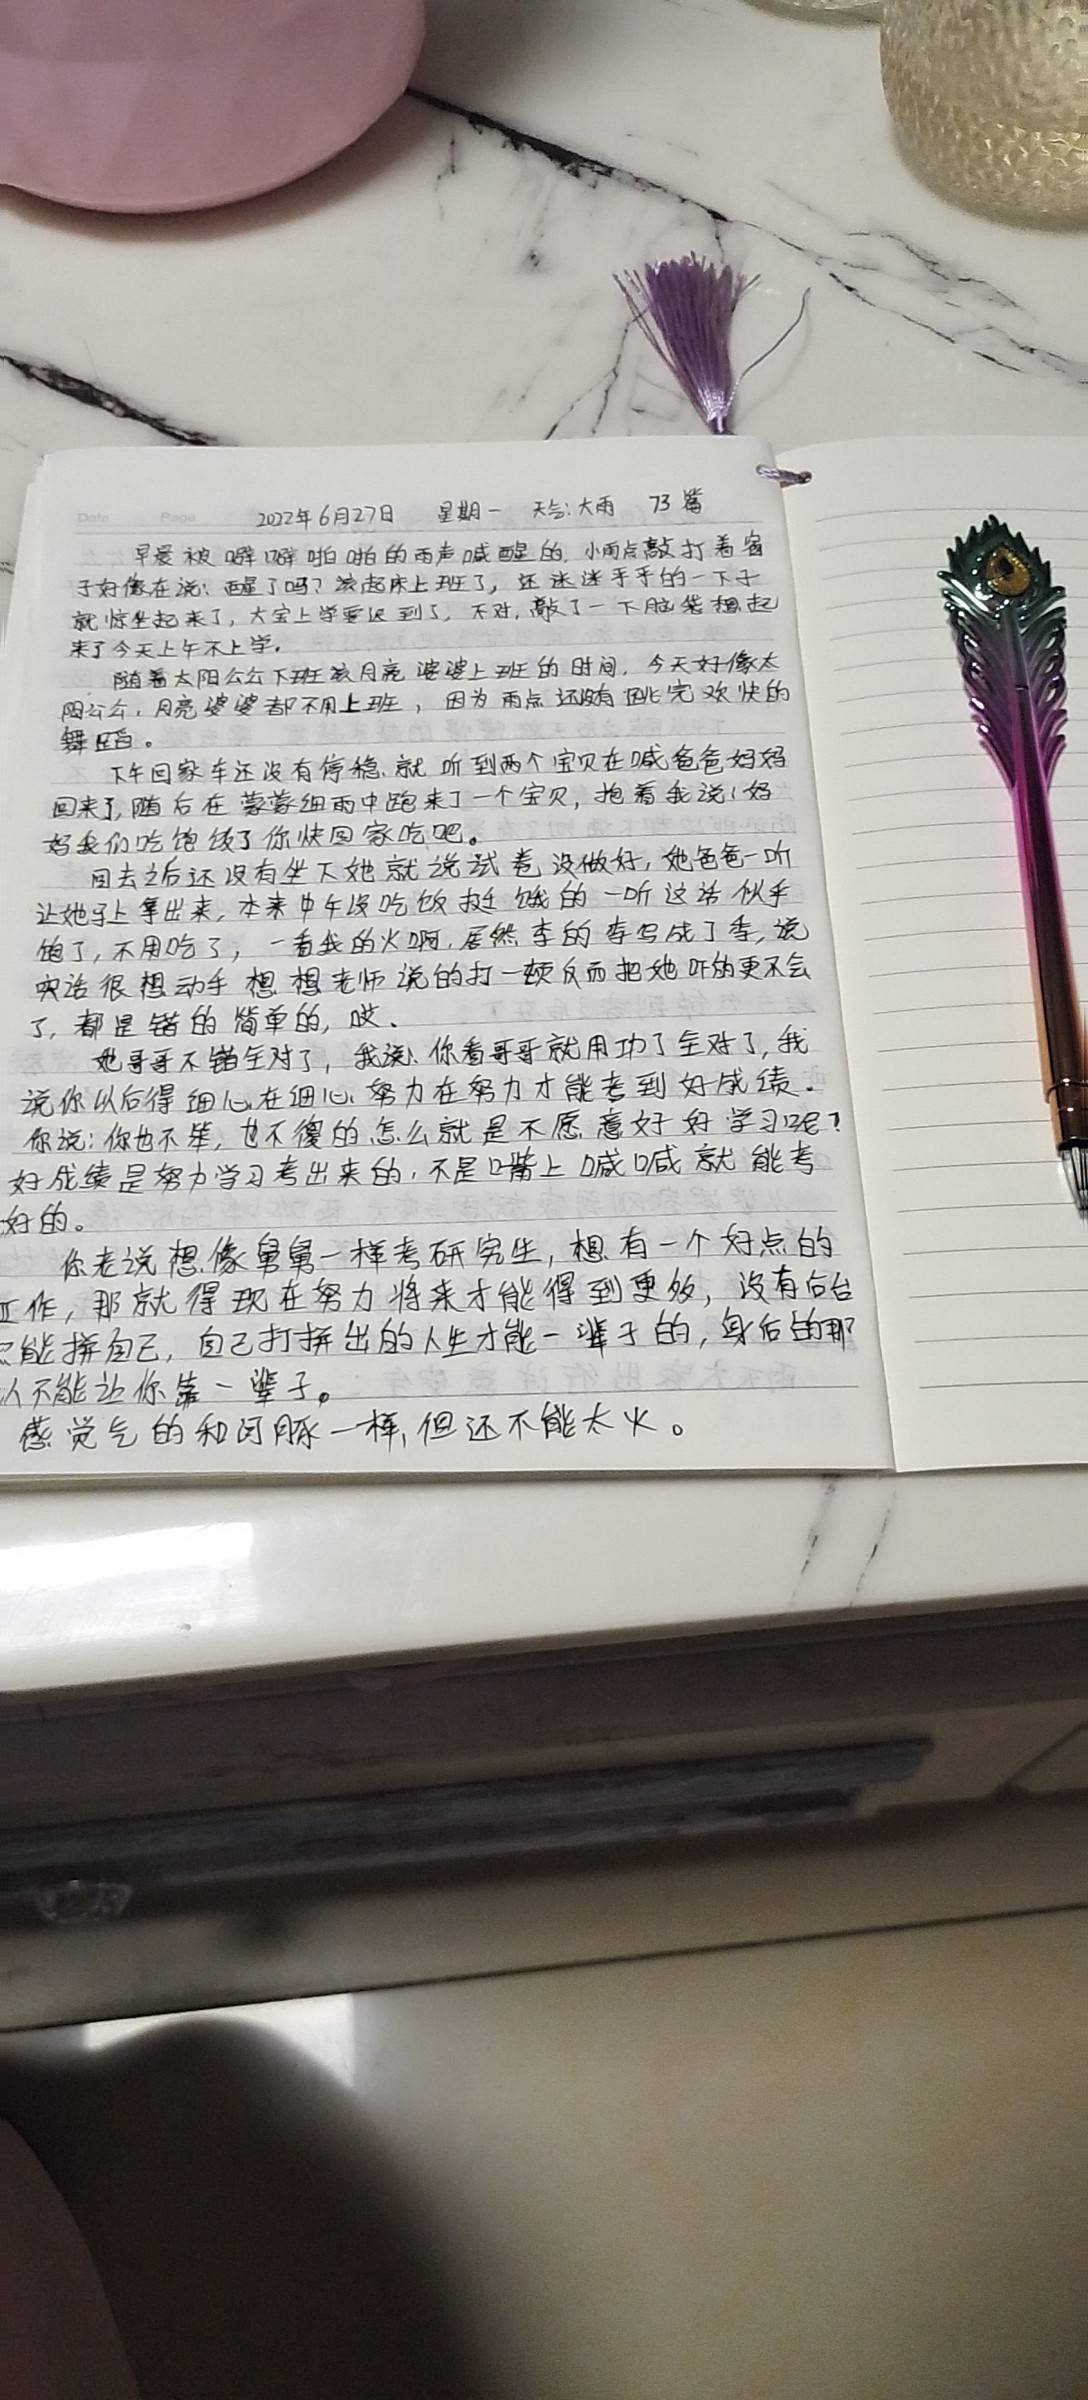 Date Page 2022年6月27日 星期一 天气:大雨 73篇
早晨被噼噼啪啪的雨声喊醒的,小雨点敲打着窗
子好像在说:醒了吗?该起床上班了,还迷迷乎乎的一下子
就惊坐起来了,大宝上学要迟到了,不对,敲了一下脑袋想起
来了今天上午不上学。
随着太阳公公下班该月亮婆婆上班的时间,今天好像太
阳公公,月亮婆婆都不用上班,因为雨点还没有跳完欢快的
舞蹈。
下午回家车还没有停稳,就听到两个宝贝在喊爸爸妈妈
回来了,随后在蒙蒙细雨中跑来了一个宝贝,抱着我说:妈
妈我们吃饱饭了你快回家吃吧。
回去之后还没有坐下她就说试卷没做好,她爸爸一听
让她马上拿出来,本来中午没吃饭挺饿的一听这话似乎
饱了,不用吃了,一看我的火啊,居然李的李写成了季,说
实话很想动手想想老师说的打一顿反而把她吓的更不会
了,都是错的简单的,哎、
她哥哥不错全对了,我说:你看哥哥就用功了全对了,我
说你以后得细心在细心,努力在努力才能考到好成绩.
你说:你也不笨,也不傻的怎么就是不愿意好好学习呢?
好成绩是努力学习考出来的,不是嘴上喊喊就能考
好的。
你老说想像舅舅一样考研究生,想有一个好点的
工作,那就得现在努力将来才能得到更多,没有后台
只能拼自己,自己打拼出的人生才能一辈子的,身后的那
人不能让你靠一辈子。
感觉气的和河豚一样,但还不能太火。